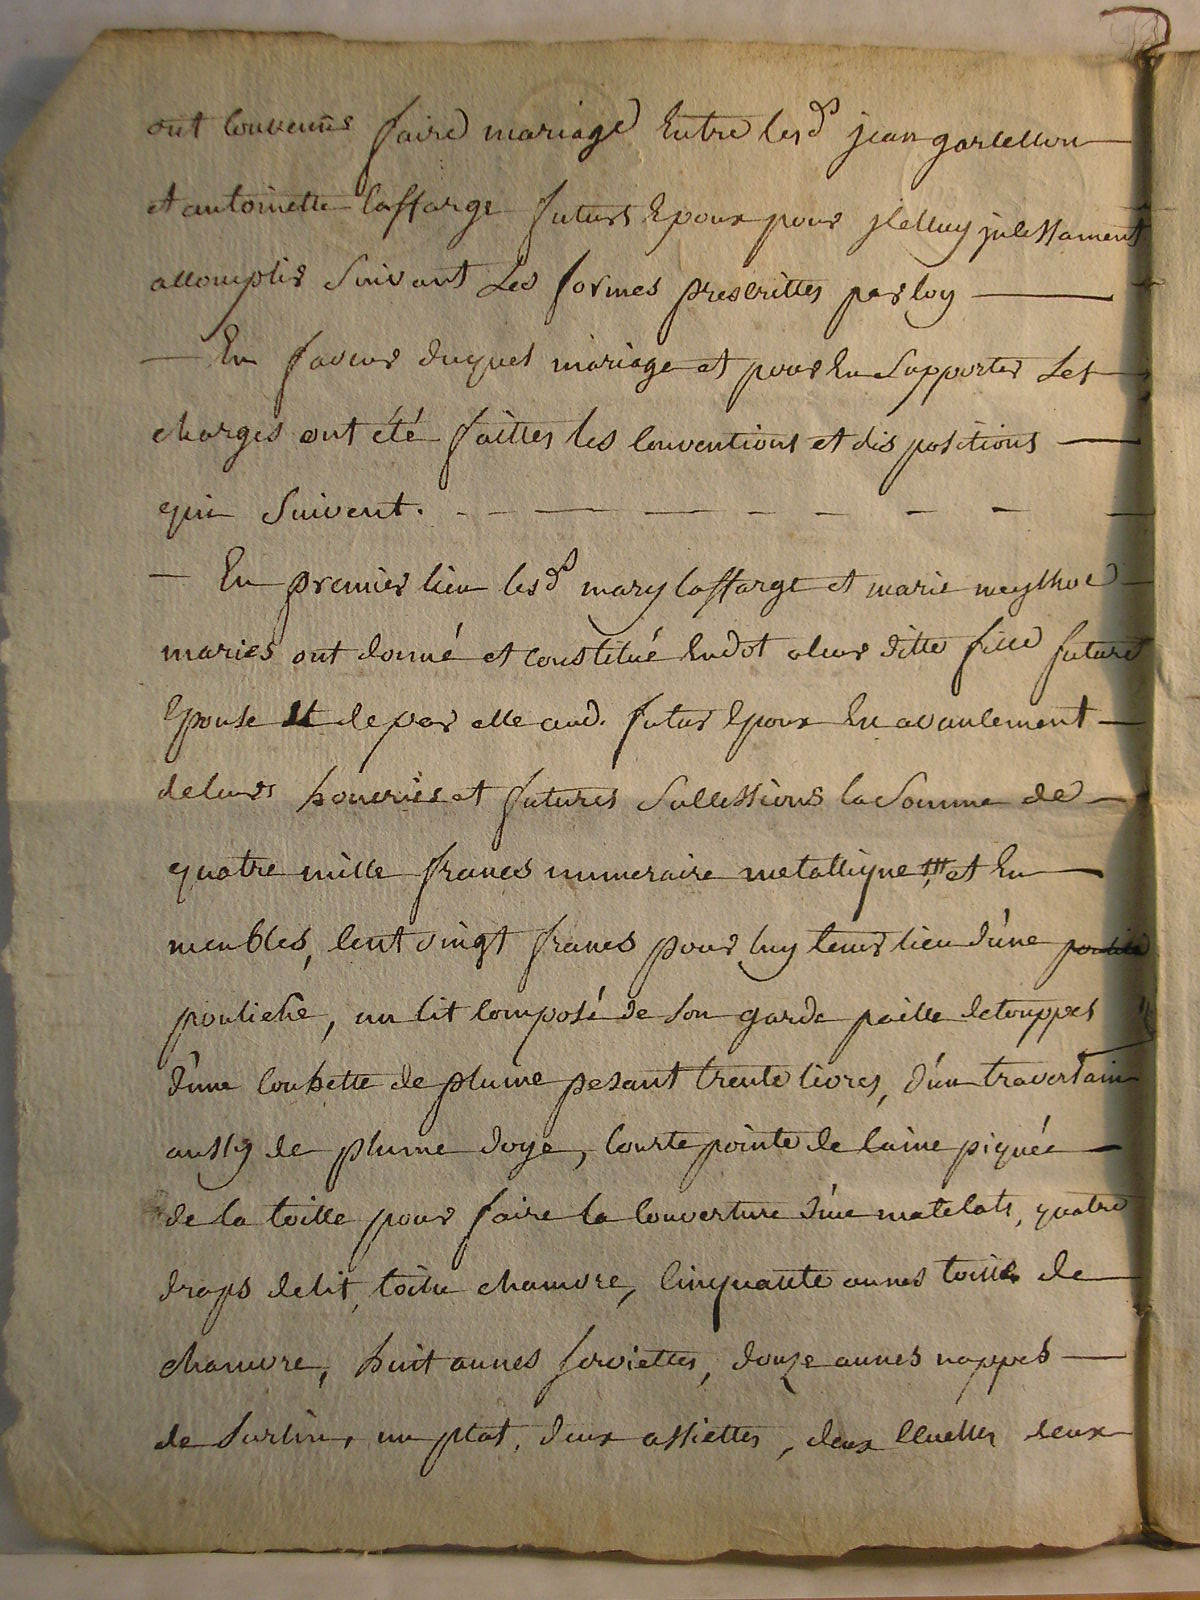 ont convenus faire mariage Entre lesd. jean garcellon
et antoinette laffarge futurs Epoux pour jcelluy
accomplir suivant Les formes prescrittes par loy
En faveur duquel mariage et pour En Supporter Les
charges ont été faittes les conventions et dis positions
qui Suivent.
En premier lieu lesd. mary laffarge et marie
maries ont donné et constitué En dot a leur ditte fille future
Epouse et de par elle aud. futur Epoux En avancement
de leurs et futures Successions la Somme de
quatre mille francs numeraire metallique et En
meubles, cent vingt francs pour luy tenir lieu d'une
pouliche, un lit composé de Son garde paille detouppes
d'une couhette de plume pesant trente livres, d'un traversain
aussy de plume doye, courte pointe de laine piquée
de la toille pour faire la couverture d'un matelats, quatre
draps de lit, toille chanvre, cinquante aunes toille de
chanvre, huit aunes serviettes, douze aunes nappes
de un plat, deux assiettes, deux Ecuelles deux